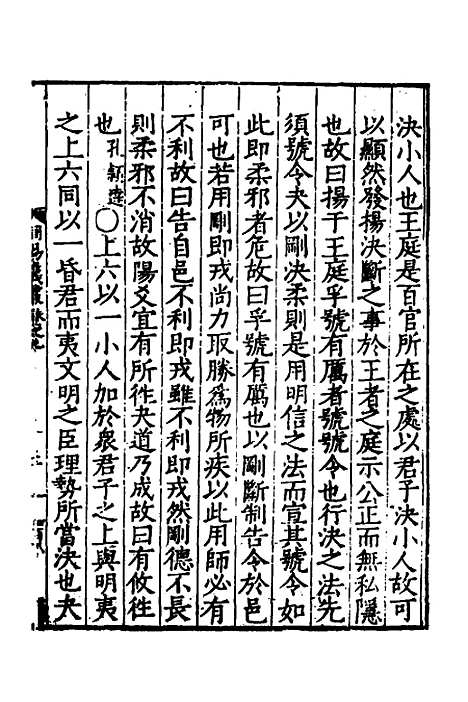 决小人也王庭是百官所在之處以君子決小人故可
以顯然發揚決斷之事於王者之庭示公正而無私隱
也故曰揚于王庭孚號有厲者號號令也行決之法先
須號令夬以剛決柔則是用明信之法而宣其號令如
此即柔邪者危故曰孚號有厲也以剛斷制告令於邑
可也若用剛即戎尚力取勝為物所疾以此用師必有
不利故曰告自邑不利即戎雖不利即戎然剛德不長
則柔邪不消故陽爻宜有所徃夬道乃成故曰有攸徃
也孔穎達〇上六以一小人加於衆君子之上與明夷
之上六同以一昏君而夷文明之臣理勢所當決也夬